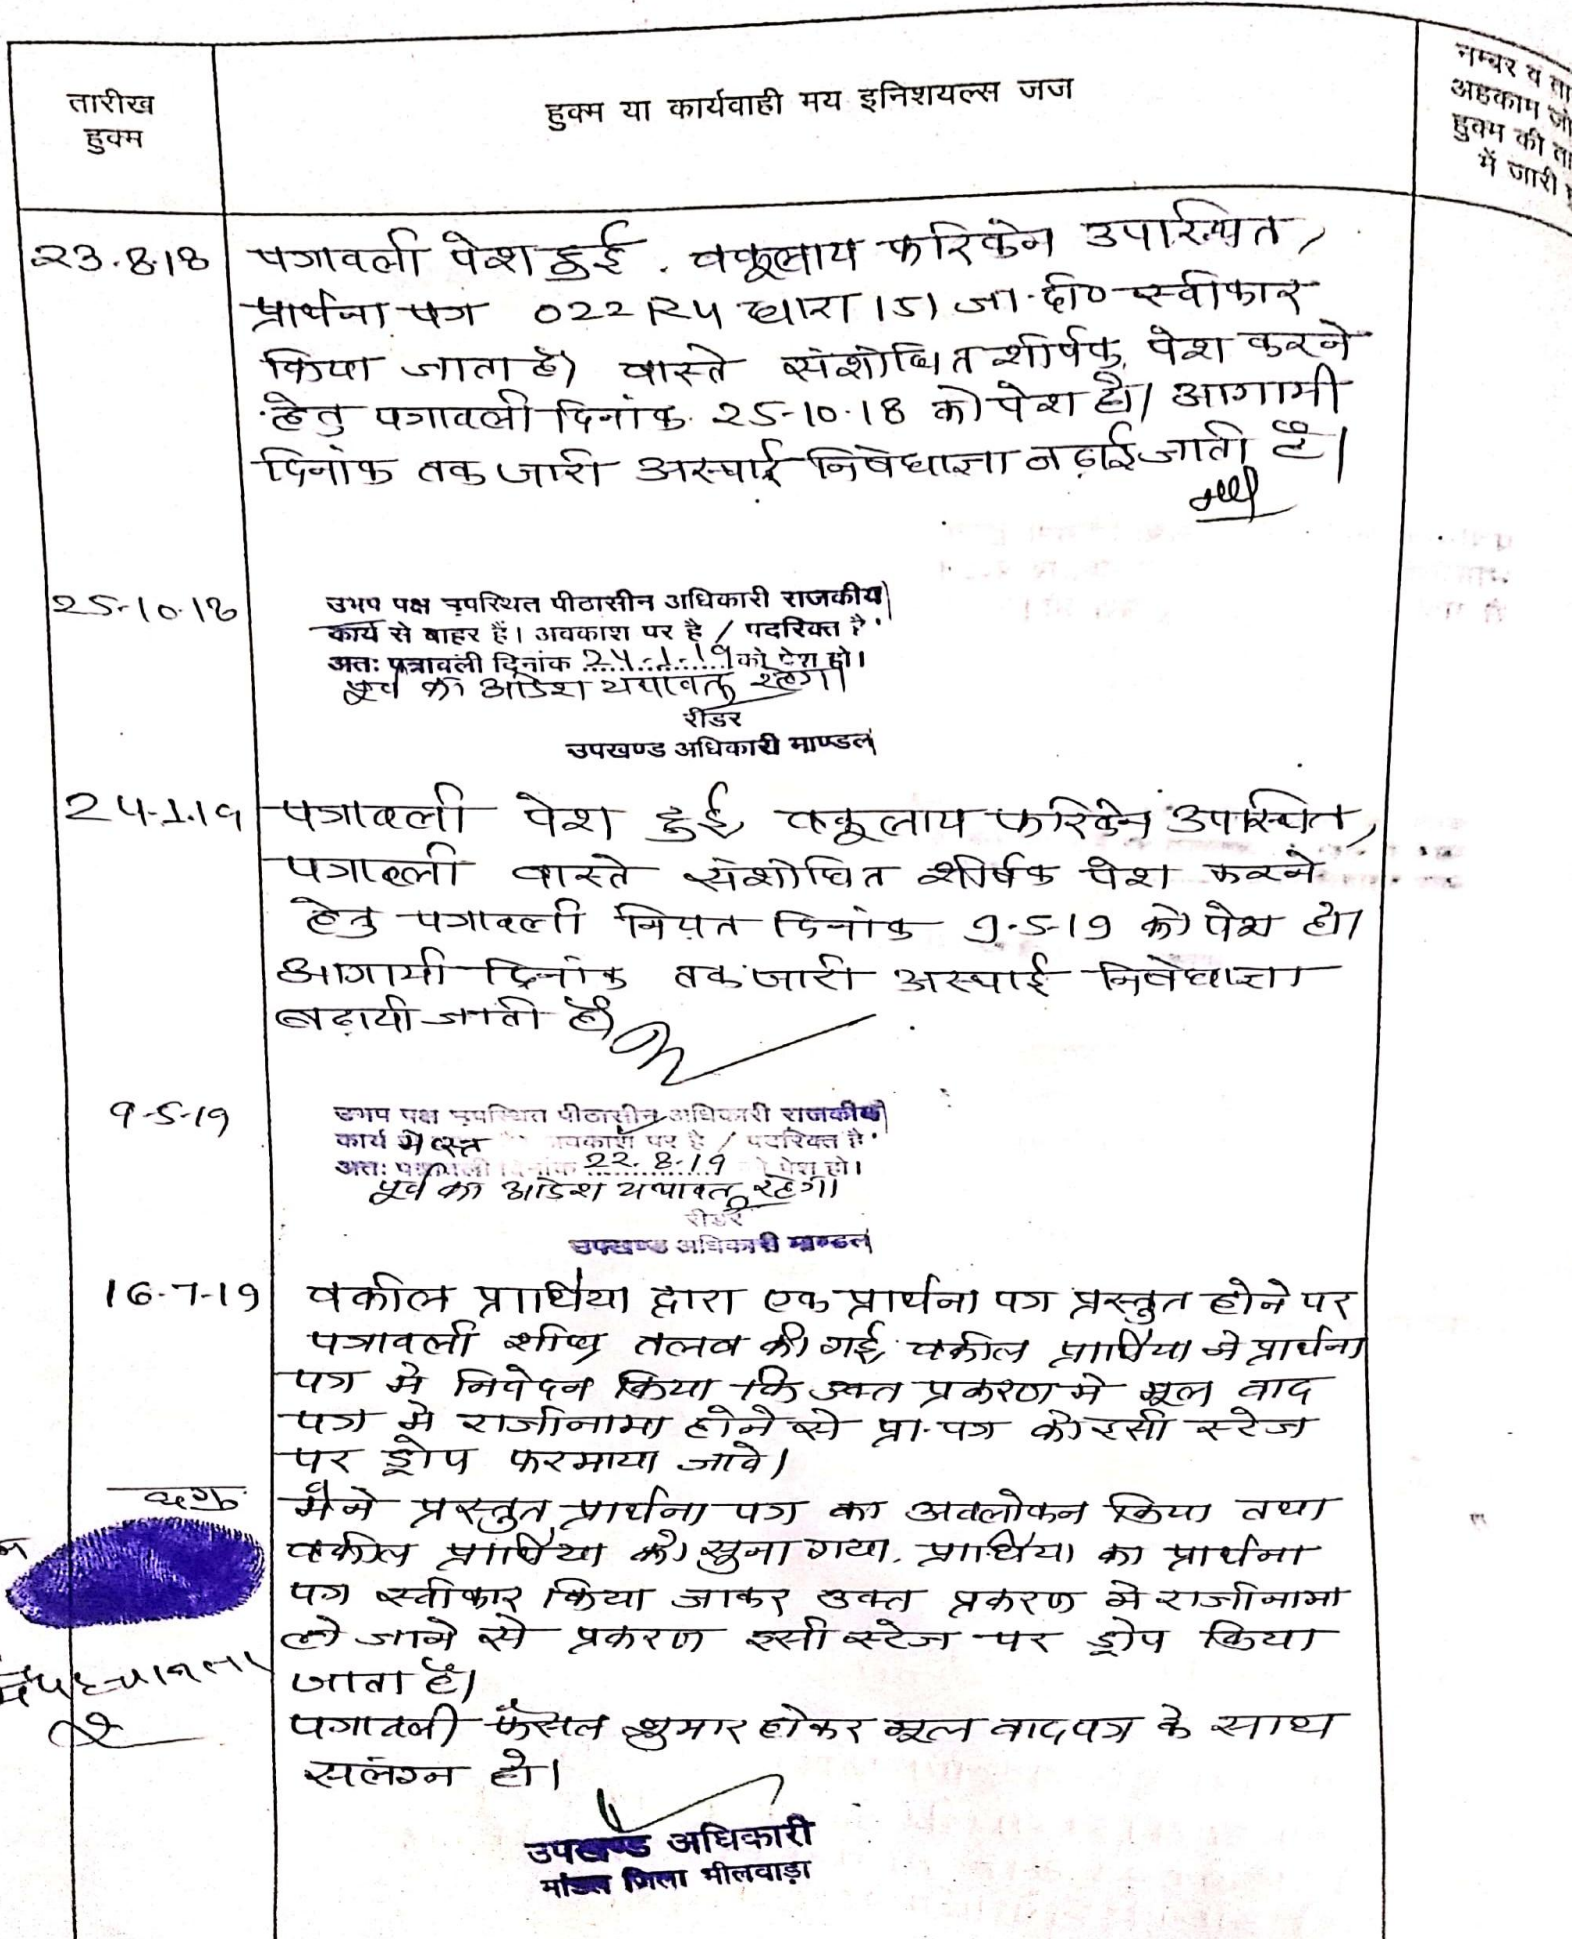 तारीख
हुक्म
हुक्म या कार्यवाही मय इनिशयल्स जज
नम्बर व ता
अहकाम जो
हुक्म की ता
में जारी
23.8.18
पत्रावली पेश हुई. वकूलाय फरिकेन उपस्थित,
प्रार्थना पत्र 022 R4 धारा 151 जा.दी० स्वीकार
किया जाता है। वास्ते संशोधित शीर्षक पेश करने
हेतु पत्रावली दिनांक 25-10-18 को पेश हो। आगामी
दिनांक तक जारी अस्थाई निषेधाज्ञा बढ़ाई जाती है।
25-10-18
उभय पक्ष उपस्थित पीठासीन अधिकारी राजकीय
कार्य से बाहर हैं। अवकाश पर है / पदरिक्त है
अतः पत्रावली दिनांक 24-1-19 को पेश हो।
पूर्व का आदेश यथावत रहेगा।
रीडर
उपखण्ड अधिकारी माण्डल
24-1-19
पत्रावली पेश हुई, वकूलाय फरिकेन उपस्थित,
पत्रावली वास्ते संशोधित शीर्षक पेश करने
हेतु पत्रावली नियत दिनांक 9-5-19 को पेश हो।
आगामी दिनांक तक जारी अस्थाई निषेधाज्ञा
बढ़ायी जाती है।
9-5-19
उभय पक्ष उपस्थित पीठासीन अधिकारी राजकीय
कार्य मे व्यस्त है अवकाश पर है / पदरिक्त है
अतः पत्रावली दिनांक 22-8-19 को पेश हो।
पूर्व का आदेश यथावत रहेगा।
रीडर
उपखण्ड अधिकारी माण्डल
16-7-19
वकील प्रार्थिया द्वारा एक प्रार्थना पत्र प्रस्तुत होने पर
पत्रावली शीघ्र तलब की गई, वकील प्रार्थिया ने प्रार्थना
पत्र मे निवेदन किया कि उक्त प्रकरण मे मूल वाद
पत्र मे राजीनामा होने से प्रा.पत्र को इसी स्टेज
पर ड्रोप फरमाया जावे।
मैने प्रस्तुत प्रार्थना पत्र का अवलोकन किया तथा
वकील प्रार्थिया को सुना गया. प्रार्थिया का प्रार्थना
पत्र स्वीकार किया जाकर उक्त प्रकरण मे राजीनामा
हो जाने से प्रकरण इसी स्टेज पर ड्रोप किया
जाता है।
पत्रावली फैसल शुमार होकर मूल वादपत्र के साथ
सलंग्न हो।
उपखण्ड अधिकारी
मांडल जिला भीलवाड़ा